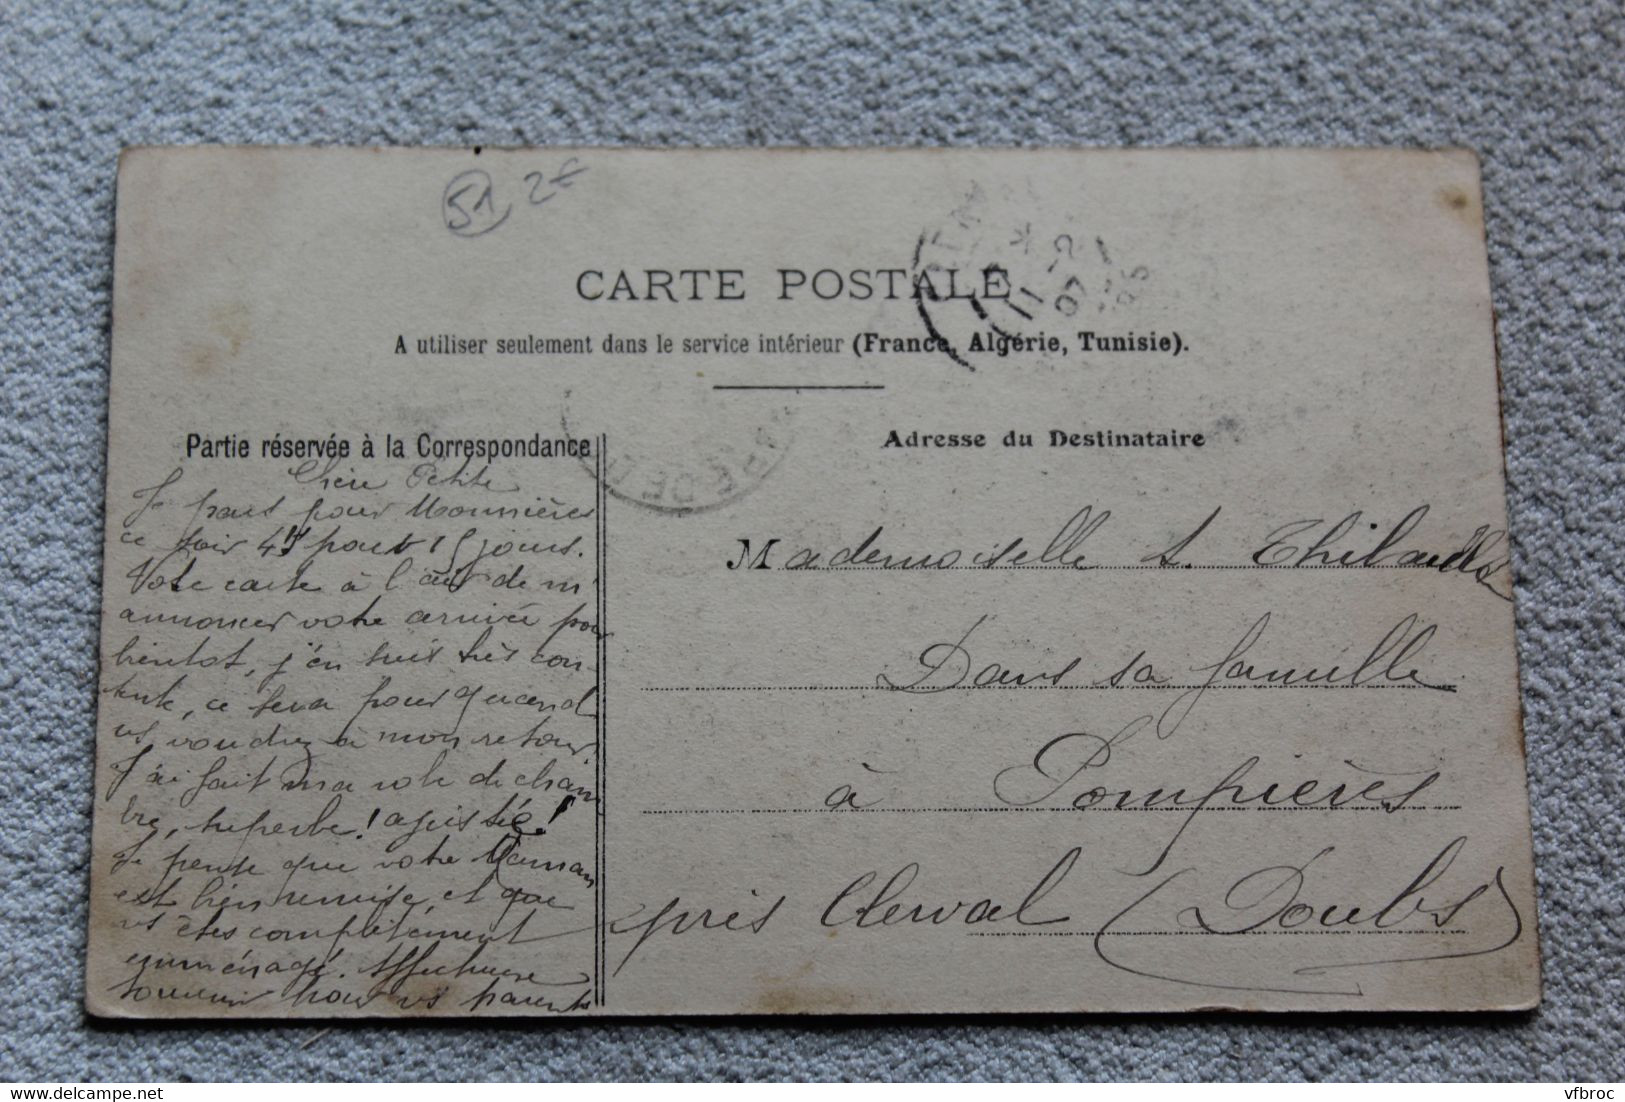 51 2€
CARTE POSTALE
A utiliser seulement dans le service intérieur (France, Algérie, Tunisie).
11 -2
07
Partie réservée à la Correspondance
Chère Petite
Je pars pour Mounières
ce soir pour 15 jours.
Votre carte à l'air de m'
annoncer votre arrivée pour
bientôt, j'en suis très con-
tente, ce sera pour quand
vs voudrez à mon retour
J'ai fait ma robe de cham
bre, superbe! ajustée!
Je pense que votre Maman
est bien remise, et que
vs êtes complètement
emménagé. Affectueux
souvenir pour vs parents
Adresse du Destinataire
Mademoiselle Thibault
Dans sa famille
à Pompières
près Clerval (Doubs)
vfbroc
delcampe.net